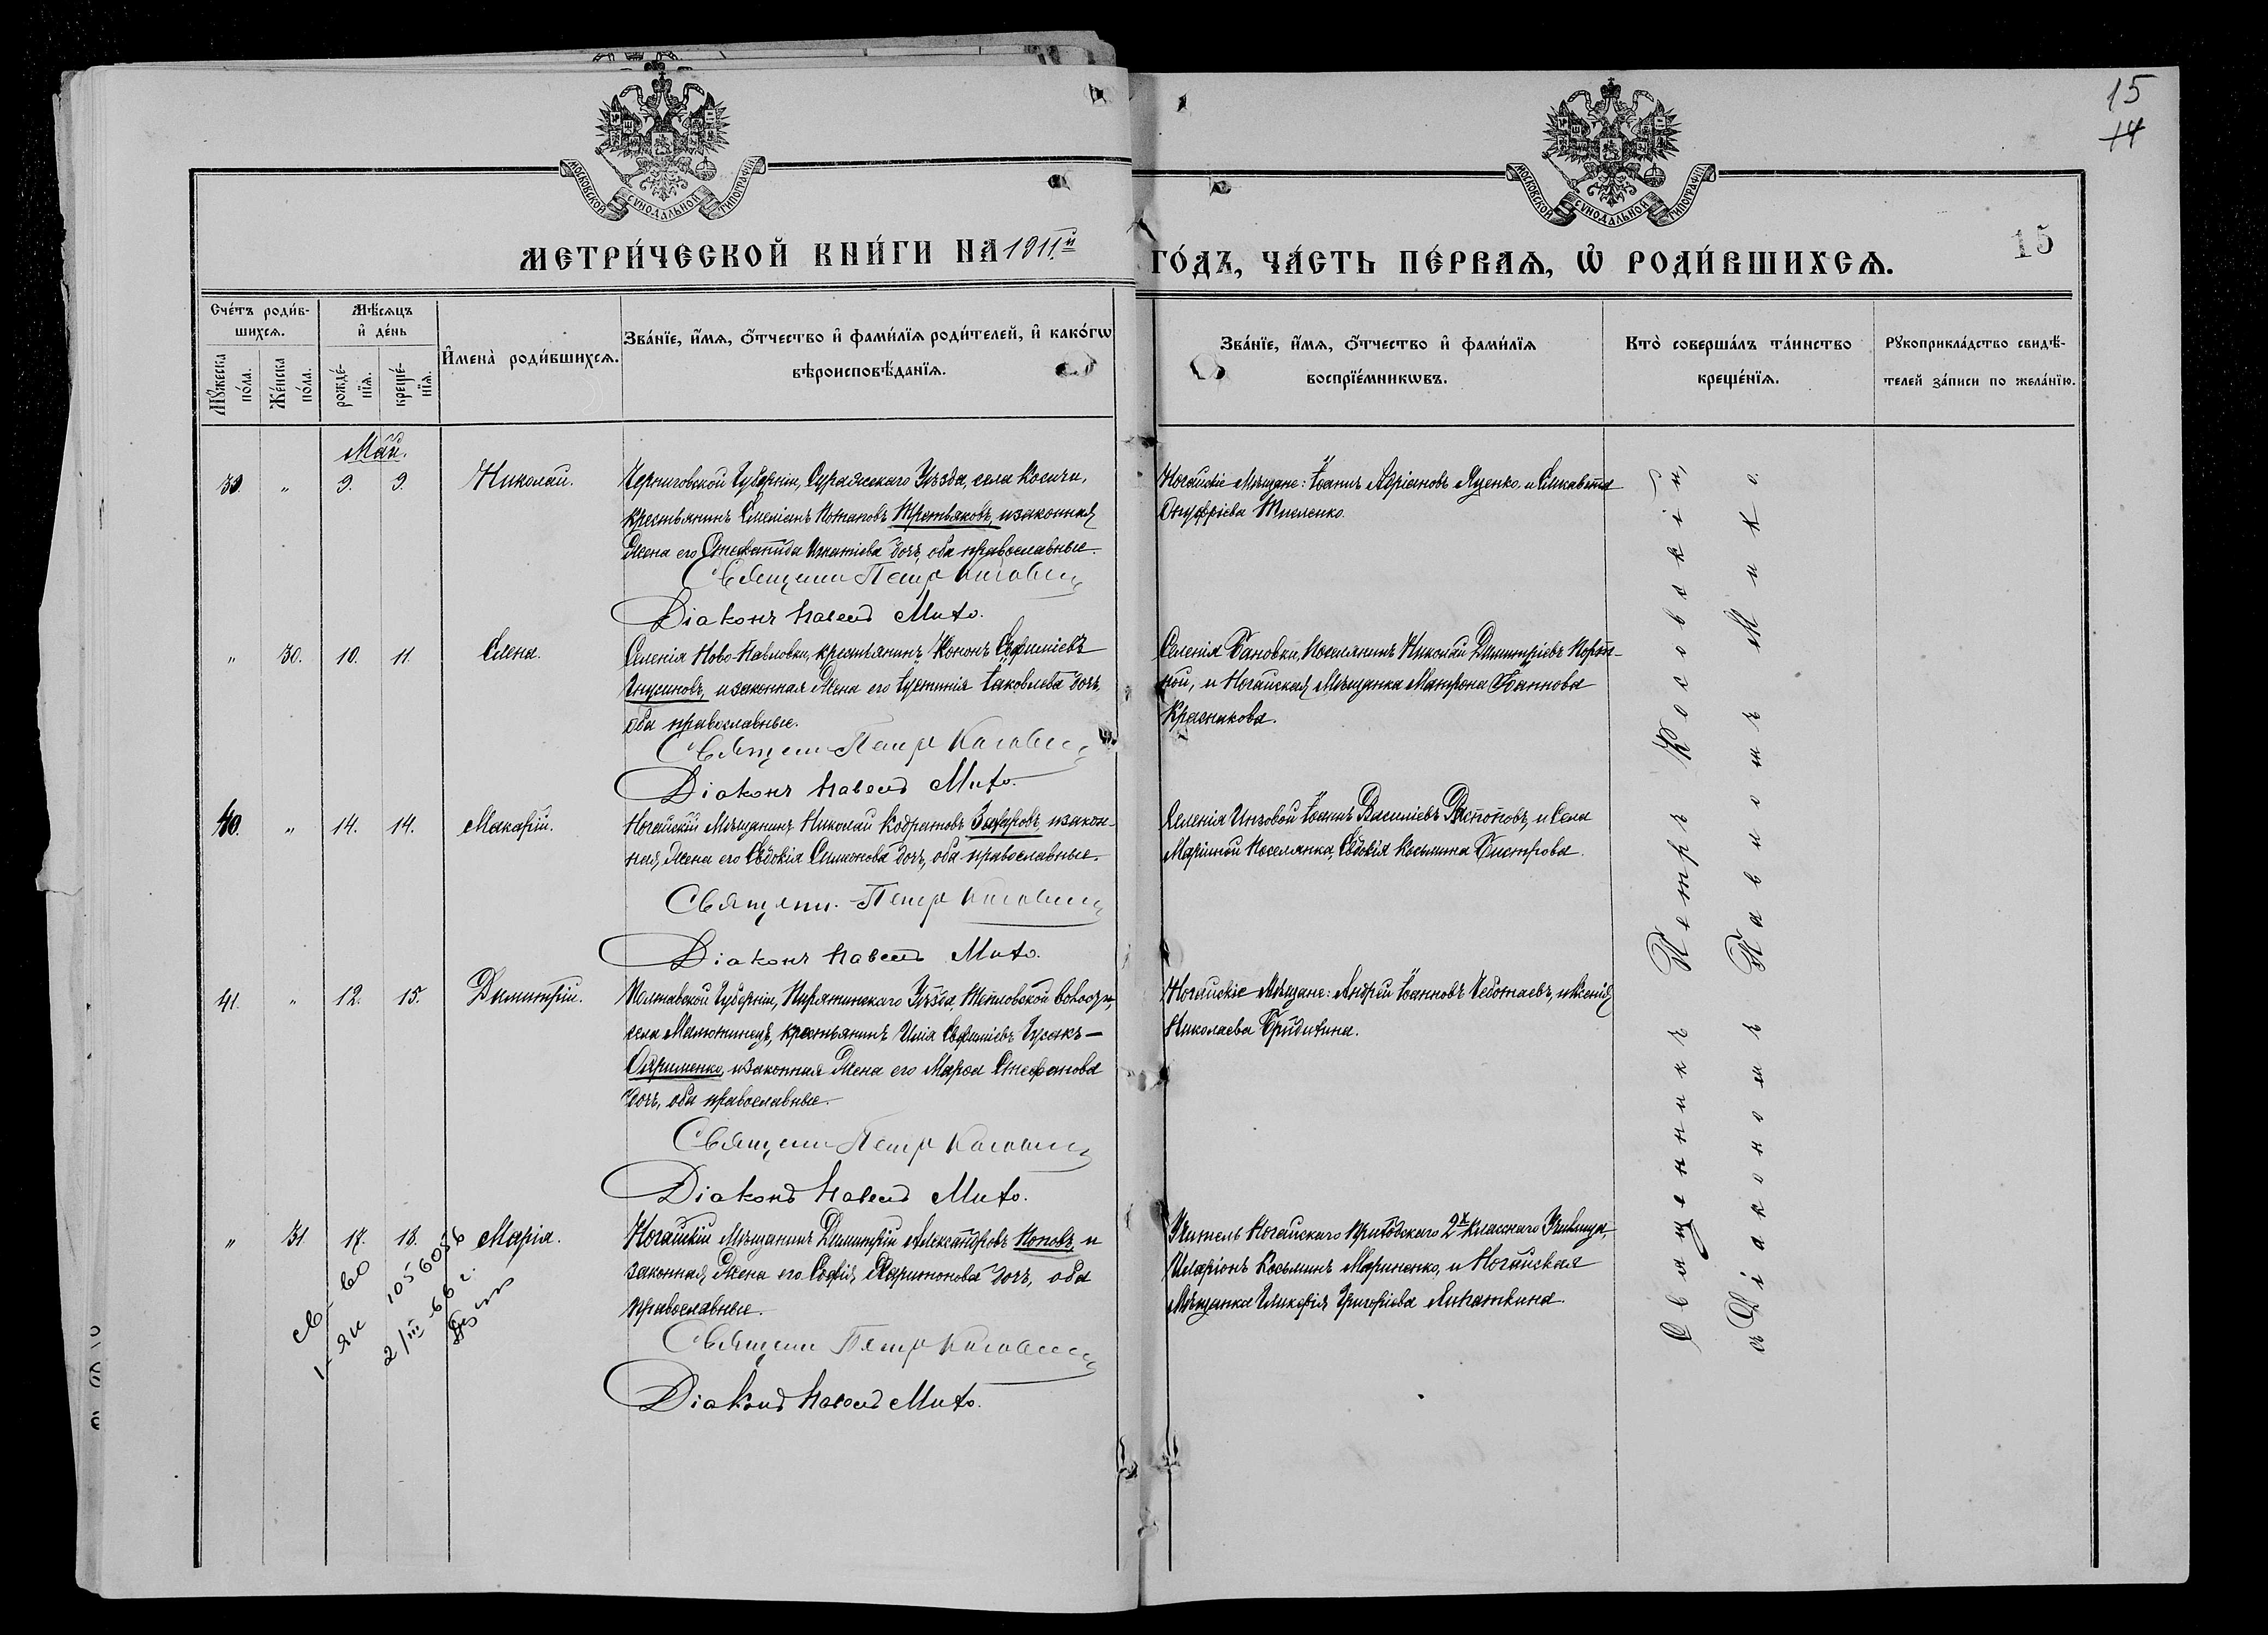 15
14
МОСКОВСКОЙ СѴНОДАЛЬНОЙ ТИПОГРАФІИ
МОСКОВСКОЙ СѴНОДАЛЬНОЙ ТИПОГРАФІИ
МЕТРИ́ЧЕСКОЙ КНИ́ГИ НА 1911й
ГО́ДЪ, ЧА́СТЬ ПЕ́РВАѦ, Ѡ҆ РОДИ́ВШИХСѦ.
15
Сче́тъ роди́в-
шихсѧ.
Мꙋ́жеска по́ла.
Же́нска по́ла.
Мѣ́сѧцъ
и҆ де́нь
рожде́-
нїѧ.
креще́-
нїѧ.
И҆мена̀ роди́вшихсѧ.
Зва́нїе, и҆́мѧ, ѻ҆́тчество и҆ фами́лїѧ роди́телей, и҆ како́гѡ
вѣроисповѣ́данїѧ.
Зва́нїе, и҆́мѧ, ѻ҆́тчество и҆ фами́лїѧ
воспрїе́мникѡвъ.
Кто̀ соверша́лъ та́инство
креще́нїѧ.
Рꙋкоприкла́дство свидѣ́-
телей за́писи по жела́нїю.
Май.
39. " 9. 9. Николай.
Черниговской Губерніи, Суражскаго Уѣзда, села Косичи,
крестьянинъ Симеонъ Потаповъ Третьяковъ, и законная
жена его Стефанида Игнатіева дочь, оба православные.
Священн. Петръ Косовскій
Діаконъ Павелъ Мико.
Ногайскіе Мѣщане: Іоаннъ Адріановъ Яценко, и Елисавета
Онуфріева
" 30. 10. 11. Елена.
Селенія Ново-Павловки, крестьянинъ Кононъ Евфиміевъ
и законная жена его Іустинія Іаковлева дочь,
оба православные.
Священн. Петръ Косовскій
Діаконъ Павелъ Мико.
Селенія Бановки, Поселянинъ Николай Димитріевъ Порт-
ной, и Ногайская Мѣщанка Матрона Іоаннова
Красникова.
40. " 14. 14. Макарій.
Ногайскій Мѣщанинъ Николай Кодратовъ Захаровъ, и закон-
ная жена его Евдокія Симонова дочь, оба православные.
Священн. Петръ Косовскій
Діаконъ Павелъ Мико.
Селенія Инзовой Іоаннъ Василіевъ и села
Маріиной Поселянка, Евдокія Косьмина Бистрова.
41. " 12. 15. Димитрій.
Полтавской Губерніи, Пирятинскаго Уѣзда, Тепловской волости,
села Малютинецъ, крестьянинъ Илія Евфиміевъ Гусакъ-
Охрименко, и законная жена его Марѳа Стефанова
дочь, оба православные.
Священн. Петръ Косовскій
Діаконъ Павелъ Мико.
Ногайскіе Мѣщане: Андрей Іоанновъ Чеботаевъ, и Ксенія
Николаева
" 31. 17. 18. Марія.
Ногайскій Мѣщанинъ Димитрій Александровъ Поповъ, и
законная жена его Софія Харитонова дочь, оба
православные.
Священн. Петръ Косовскій
Діаконъ Павелъ Мико.
Учитель Ногайскаго Приходскаго 2х класснаго Училища,
Иларіонъ Косьминъ Мариненко, и Ногайская
Мѣщанка Гликерія Григоріева Липаткина.
Св-во
1-ЯК 1056086
2/III-66 г.
Священникъ Петръ Косовскій,
съ Діакономъ Павломъ Мико.